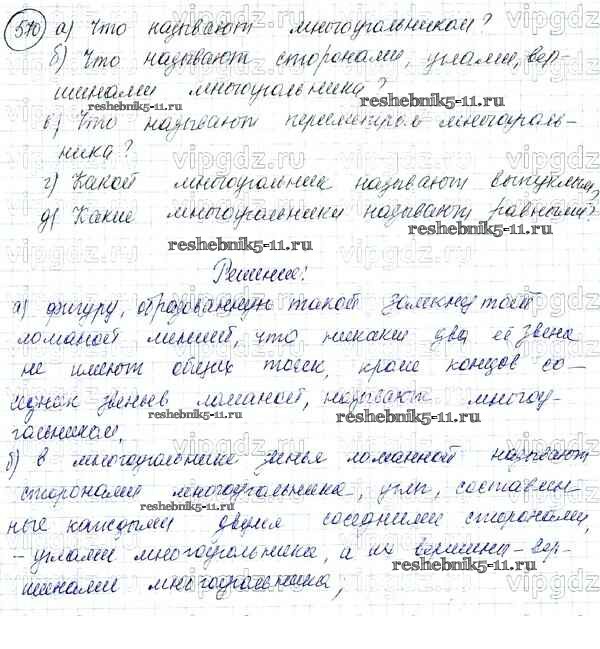 570 а) Что называют многоугольником?
б) Что называют сторонами, углами, вер-
шинами многоугольника?
в) Что называют периметром многоуголь-
ника?
г) Какой многоугольник называют выпуклым?
д) Какие многоугольники называют равными?
Решение!
а) фигуру, образованную такой замкнутой
ломаной линией, что никакие два её звена
не имеют общих точек, кроме концов со-
седних звеньев ломаной, называют многоу-
гольником,
б) в многоугольнике звенья ломанной называют
сторонами многоугольника, углы, составлен-
ные каждыми двумя соседними сторонами,
- углами многоугольника, а их вершины - вер-
шинами многоугольника;
vipgdz.ru
reshebnik5-11.ru